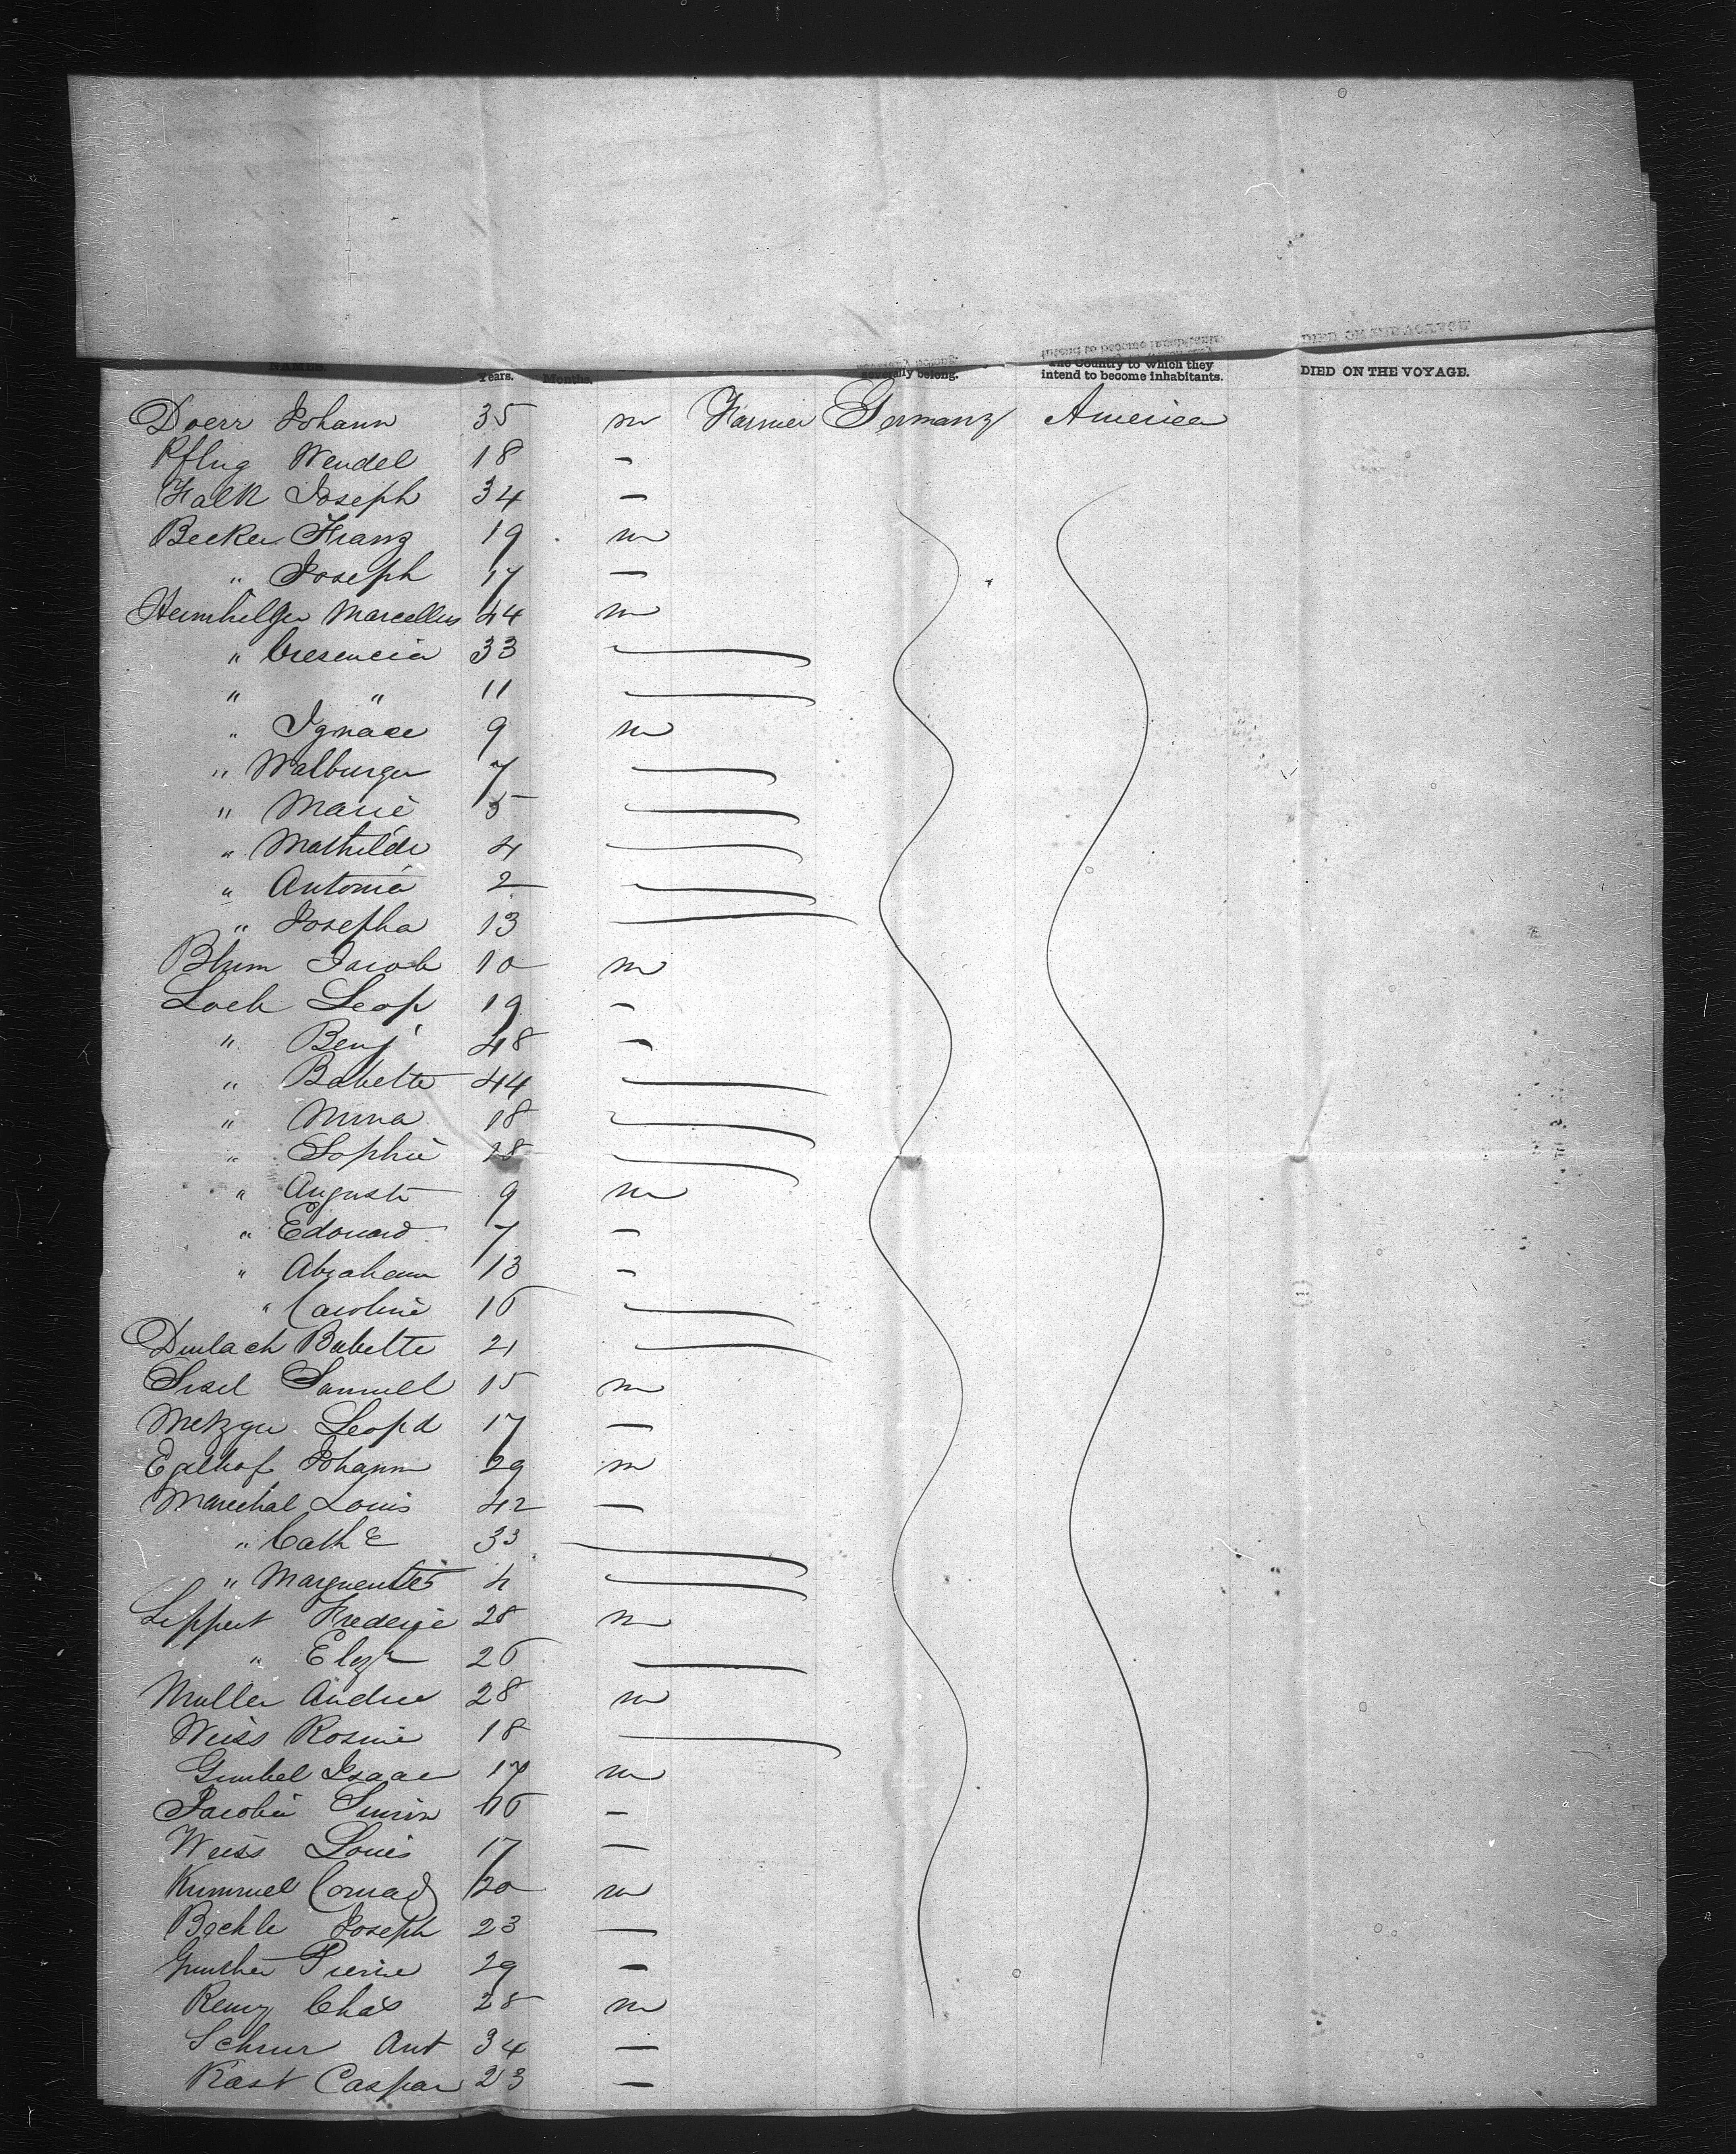 DIED ON THE VOYAGE
intend to become inhabitants.
severally belong.
NAMES. Years. Months. severally belong. The Country to which they intend to become inhabitants. DIED ON THE VOYAGE.
Doerr Johann 35 m Farmer Germany America
Pflug Wendel 18 —
Falk Joseph 34 —
Becker Franz 19 m
" Joseph 17 —
Marcellus 44 m
" Cresencia 33
" " 11
" Ignace 9 m
" Walburga 7
" Marie 5
" Mathilde 4
" Antonia 2
" Josepha 13
Blum Jacob 10 m
Loeb Leop 19 —
" Benj 48 —
" Babette 44
" Mina 18
" Sophie 18
" Auguste 9 m
" Edouard 7 —
" Abraham 13 —
" Caroline 16
Durlach Babette 21
Sisel Samuel 15 m
Metzger Leopd 17 —
Egelhof Johann 29 m
Marechal Louis 42 —
" Cath e 33
" Marguerite 4
Lippert Frederic 28 m
" Elize 26
Muller Andre 28 m
Weiss Rosine 18
Gumbel Isaac 17 m
Simon —
Weiss Louis 17 —
Kummel Conrad 20 m
Bechle Joseph 23 —
Gunther Pierre 29 —
Remy Chas 28 m
Schnur Ant 34 —
Kast Caspar 23 —